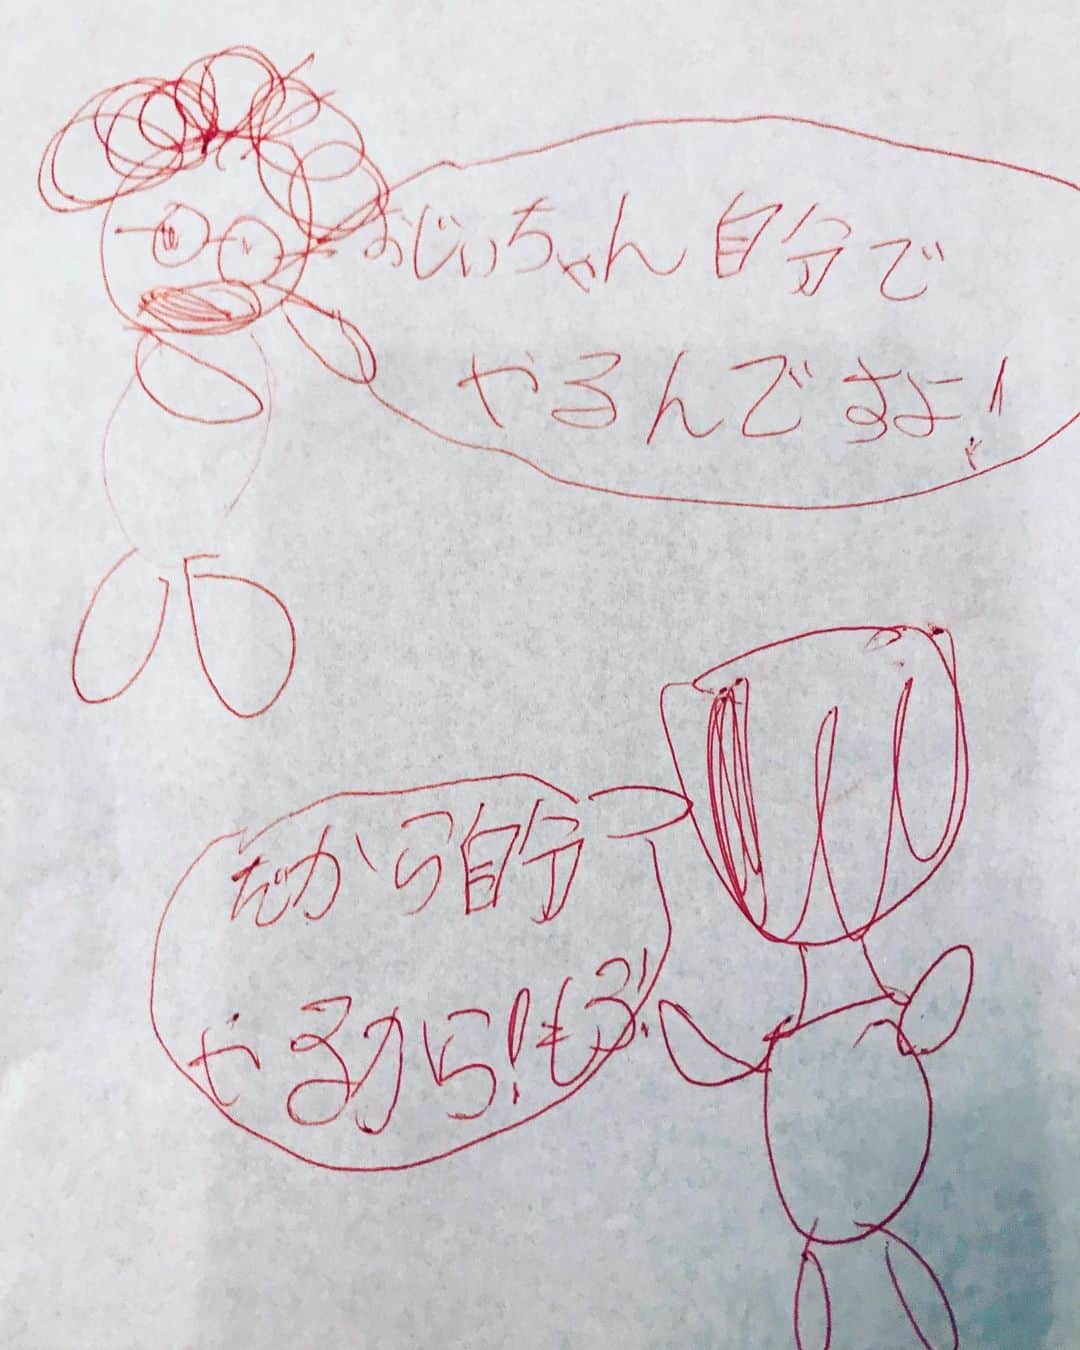 おじいちゃん自分で
やるんですよ!
だから自分
やるから!もぶ